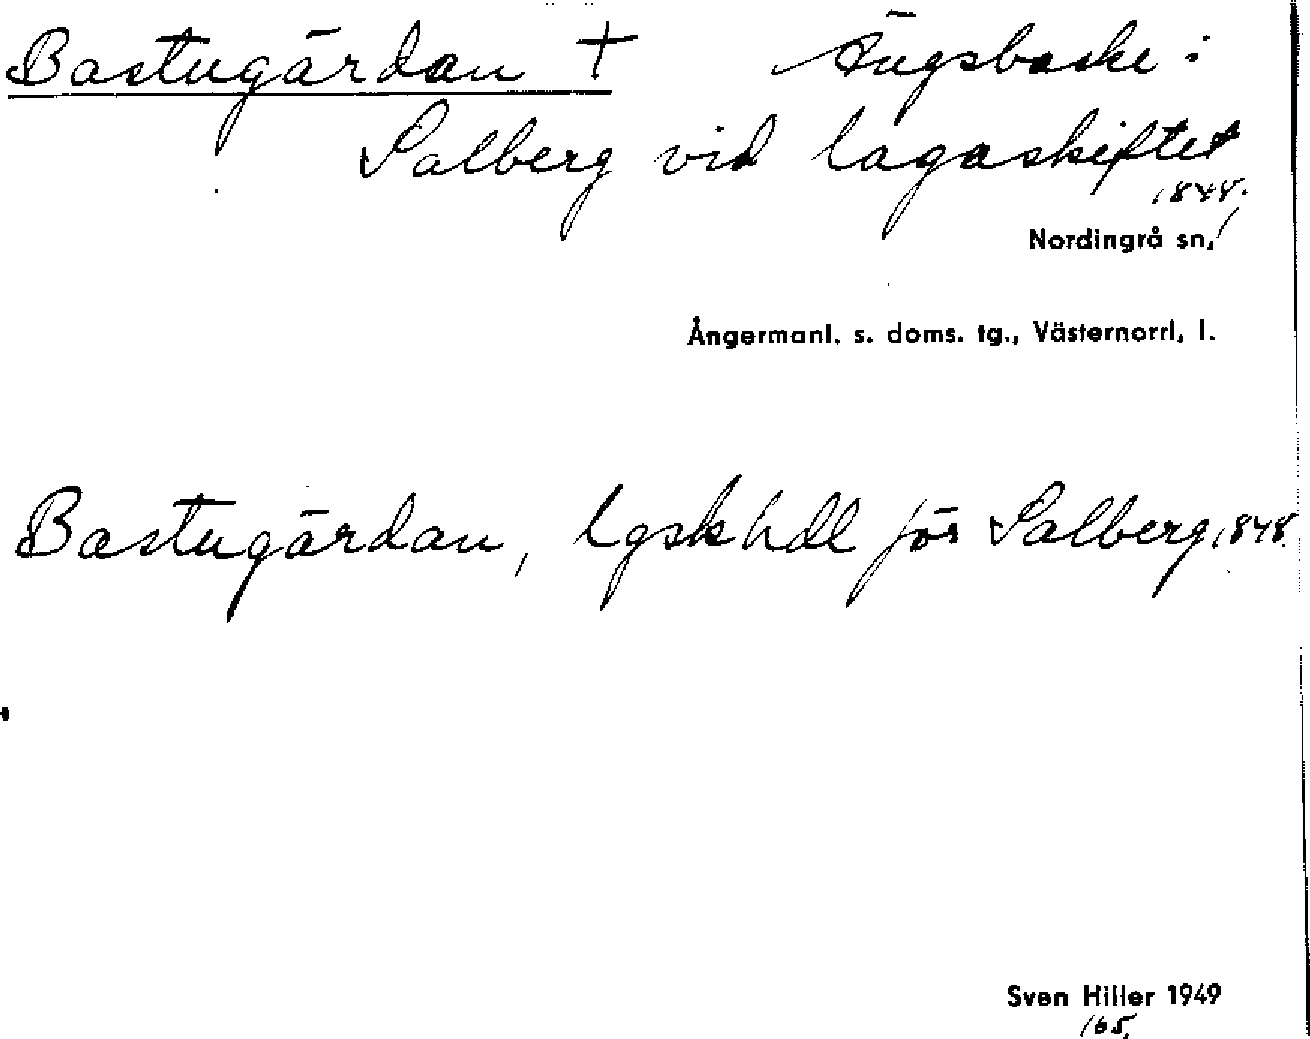 Bastugärdan † Ängsbacke i
Salberg vid lagaskiftet
1848.
Nordingrå sn,
Ångermanl. s. doms. tg., Västernorrl, l.
Bastugärdan, lgsk hdl för Salberg 1848.
Sven Hiller 1949
165,